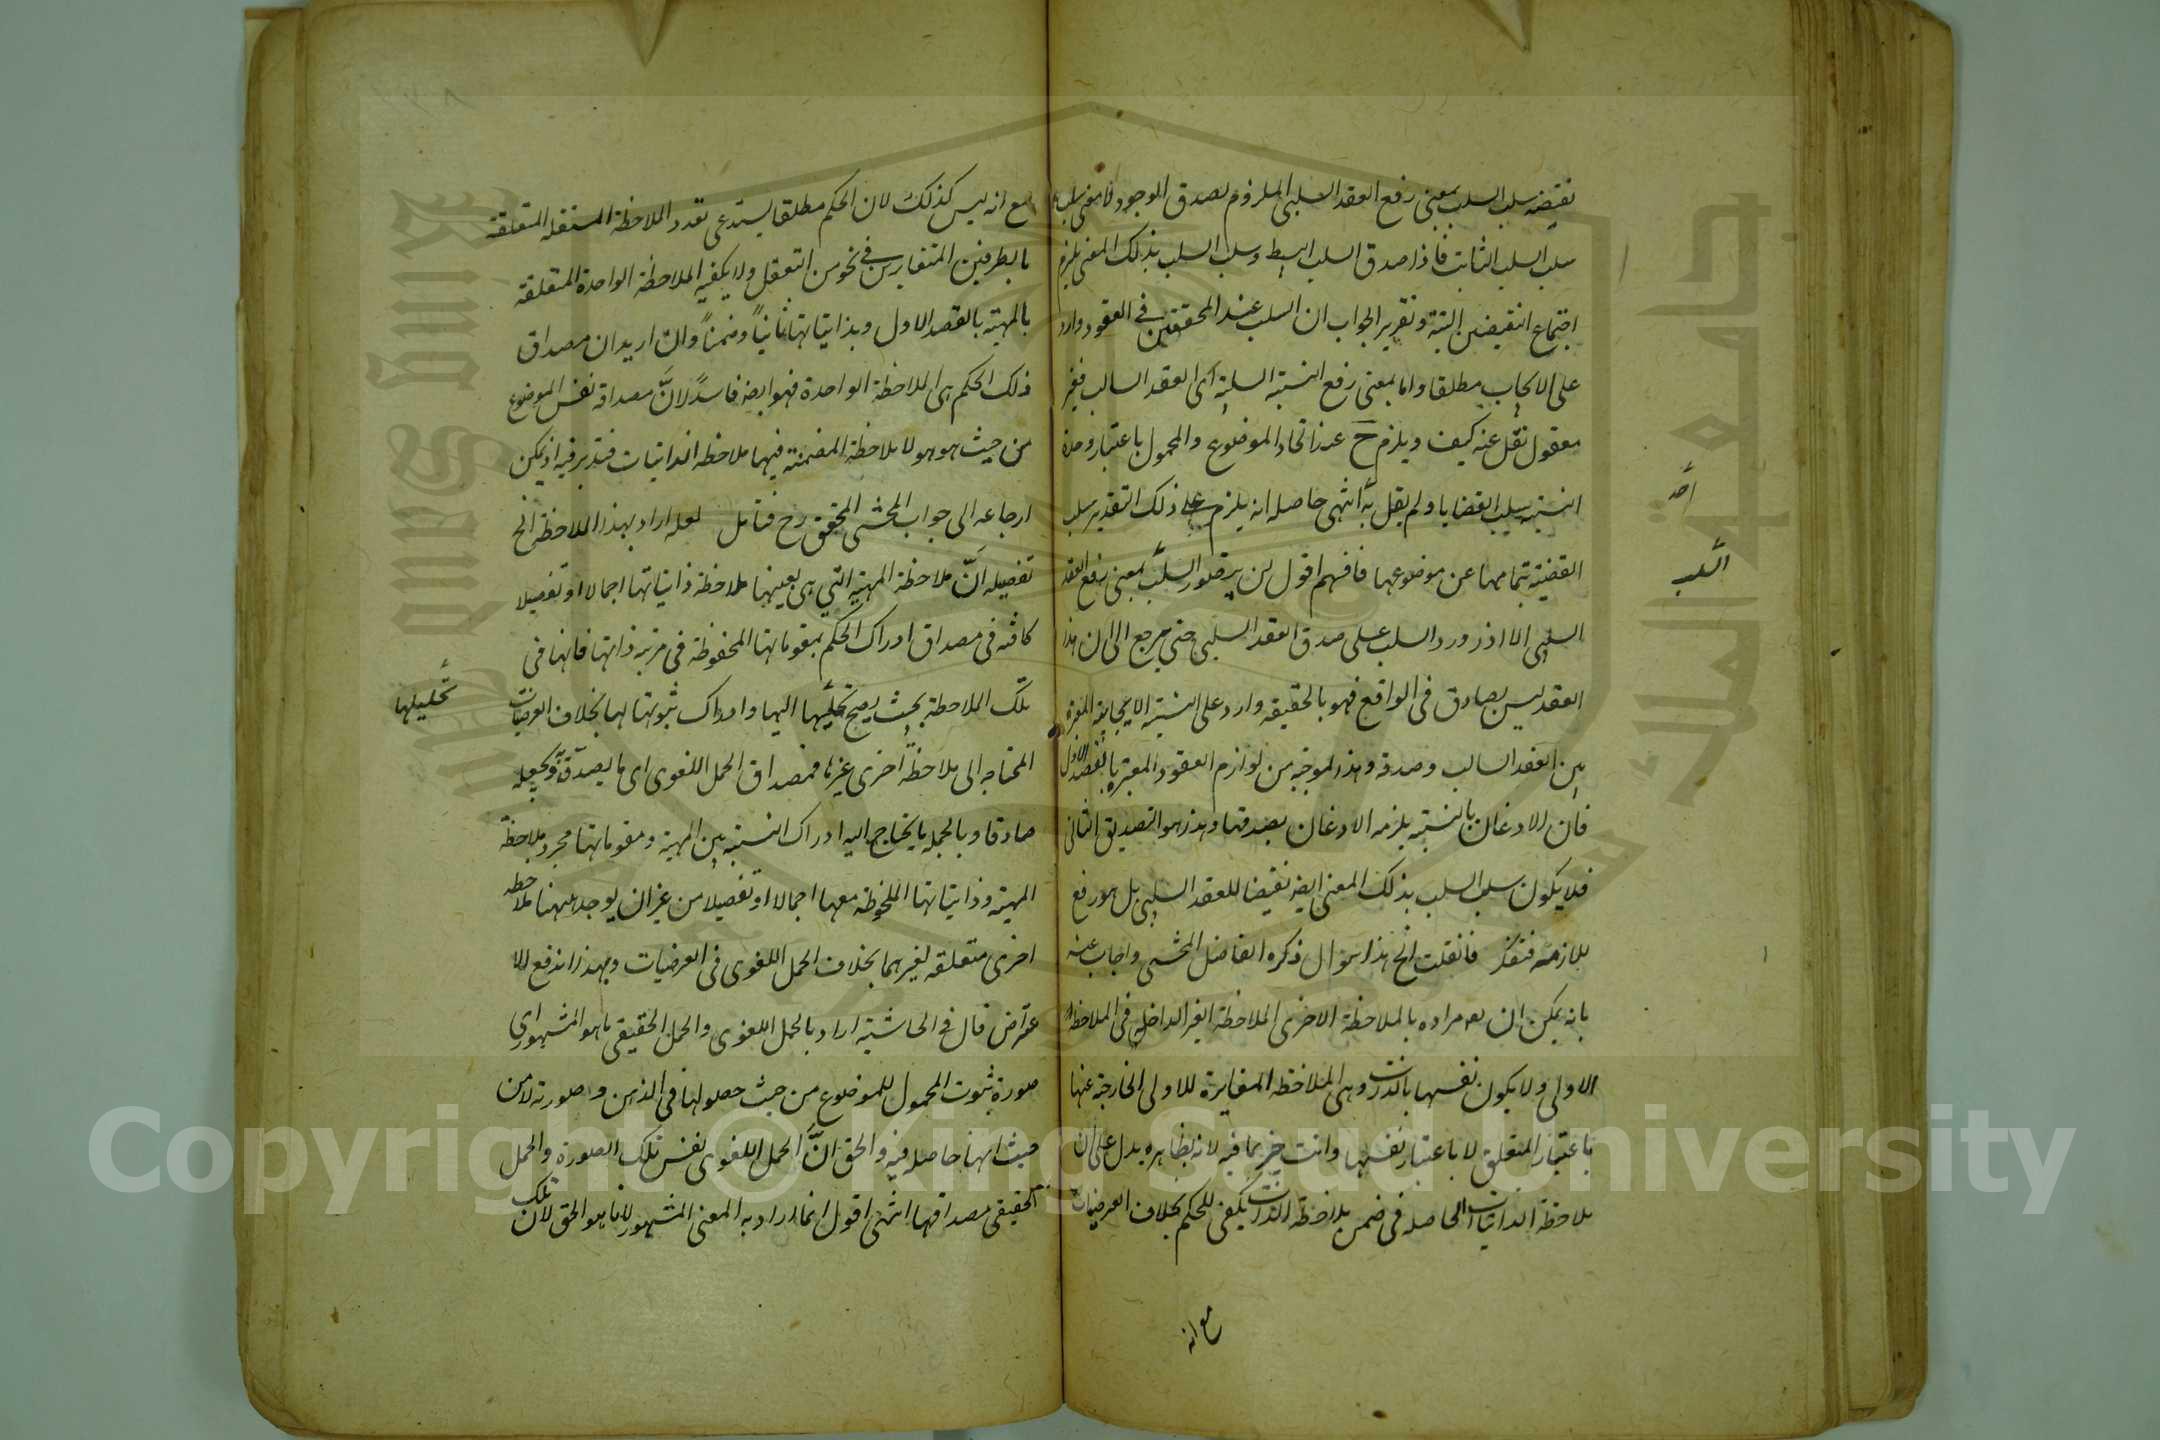 نقيضه سلب السلب بمعنى رفع العقد السلبى الملزوم لصدق الموجود لا معنى سلب
سلب السلب الثابت فاذا صدق السلب البسيط وسلب السلب بذلك المعنى يلزم
اجتماع النقيضين البتة وتقرير الجواب ان السلب عند المحققين فى العقود وارد
على الايجاب مطلقا واما بمعنى رفع النسبة السلبية اى العقد السالب فغير
معقول نقل عنه كيف ويلزم ح عدم اتحاد الموضوع والمحمول باعتبار وحدة
النسبة سلب القضايا ولم يقل به احد انتهى حاصله انه يلزم على ذلك التقدير سلب
القضية بتمامها عن موضوعها فافهم اقول لن يتصور السلب بمعنى رفع العقد
السلبى الا اذا ورد السلب على صدق العقد السلبى حتى يرجع الى ان هذا
العقد ليس بصادق فى الواقع فهو بالحقيقة وارد على النسبة الايجابية
بين العقد السالب وصدقه وهذه الموجبة من لوازم العقود المعتبرة بالقصد الاول
فان الاذعان بالنسبة يلزمه الاذعان بصدقها وهذا هو التصديق الثانى
فلا يكون سلب السلب بذلك المعنى ايضه نقيضا للعقد السلبى بل هو رفع
للازمه فتفكر فانقلت الخ هذا سؤال ذكره الفاضل المحشى واجاب عنه
بانه يمكن ان يه مراده بالملاحظة الاخرى الملاحظة الغير الداخلة فى الملاحظة
الاولى ولا يكون نفسها بالذات وهى الملاحظة المغايرة للاولى الخارجة عنها
باعتبار المتعلق لا باعتبار نفسها وانت خبير بما فيه لانه بظاهره يدل على ان
ملاحظة الذاتيات الحاصلة فى ضمن ملاحظة الذات يكفى للحكم بخلاف العرضيات
مع انه
احد
السلب
مع انه ليس كذلك لان الحكم مطلقا يستدعى تعدد الملاحظة المستقلة المتعلقة
بالطرفين المتغايرين فى نحو من التعقل ولا يكفيه الملاحظة الواحدة المتعلقة
بالمهية بالقصد الاول وبذاتياتها ثانياً وضمناً وان اريد ان مصداق
ذلك الحكم هى الملاحظة الواحدة فهو ايضه فاسدً لانَّ مصداقه نفس الموضوع
من حيث هو هو لا ملاحظة المضمنة فيها ملاحظة الذاتيات فتدبر فيه اذ يمكن
ارجاعه الى جواب المحشى المحقق رح فتامل لعله اراد بهذا الملاحظة الخ
تفصيله انَّ ملاحظة المهية التى هى بعينها ملاحظة ذاتياتها اجمالا او تفصيلا
كافية فى مصداق ادراك الحكم بمقوماتها المحفوظة فى مرتبة ذاتها فانها فى
تلك الملاحظة بحيث يصح تحليلها اليها وادراك ثبوتها لها بخلاف العرضيات
المحتاجة الى ملاحظة اخرى غيرها فمصداق الحمل اللغوى اى ما يصدقه ويجعله
صادقا وبالجملة ما يحتاج اليه ادراك النسبة بين المهية ومقوماتها مجرد ملاحظة
المهية وذاتياتها الملحوظة معها اجمالا او تفصيلا من غير ان يوجد ههنا ملاحظة
اخرى متعلقة لغيرهما بخلاف الحمل اللغوى فى العرضيات وبهذا اندفع الا
عتراض قال فى الحاشية اراد بالحمل اللغوى والحمل الحقيقى ما هو المشهور اى
صورة ثبوت المحمول للموضوع من حيث حصولها فى الذهن و صورته لا من
حيث انها حاصلة فيه والحق انَّ الحمل اللغوى نفس تلك الصورة والحمل
الحقيقى مصداقها انتهى اقول انما اراد به المعنى المشهور لا ما هو الحق لان تلك
تحليلها
جامعة الملك سعود
King Saud University
Copyright © King Saud University